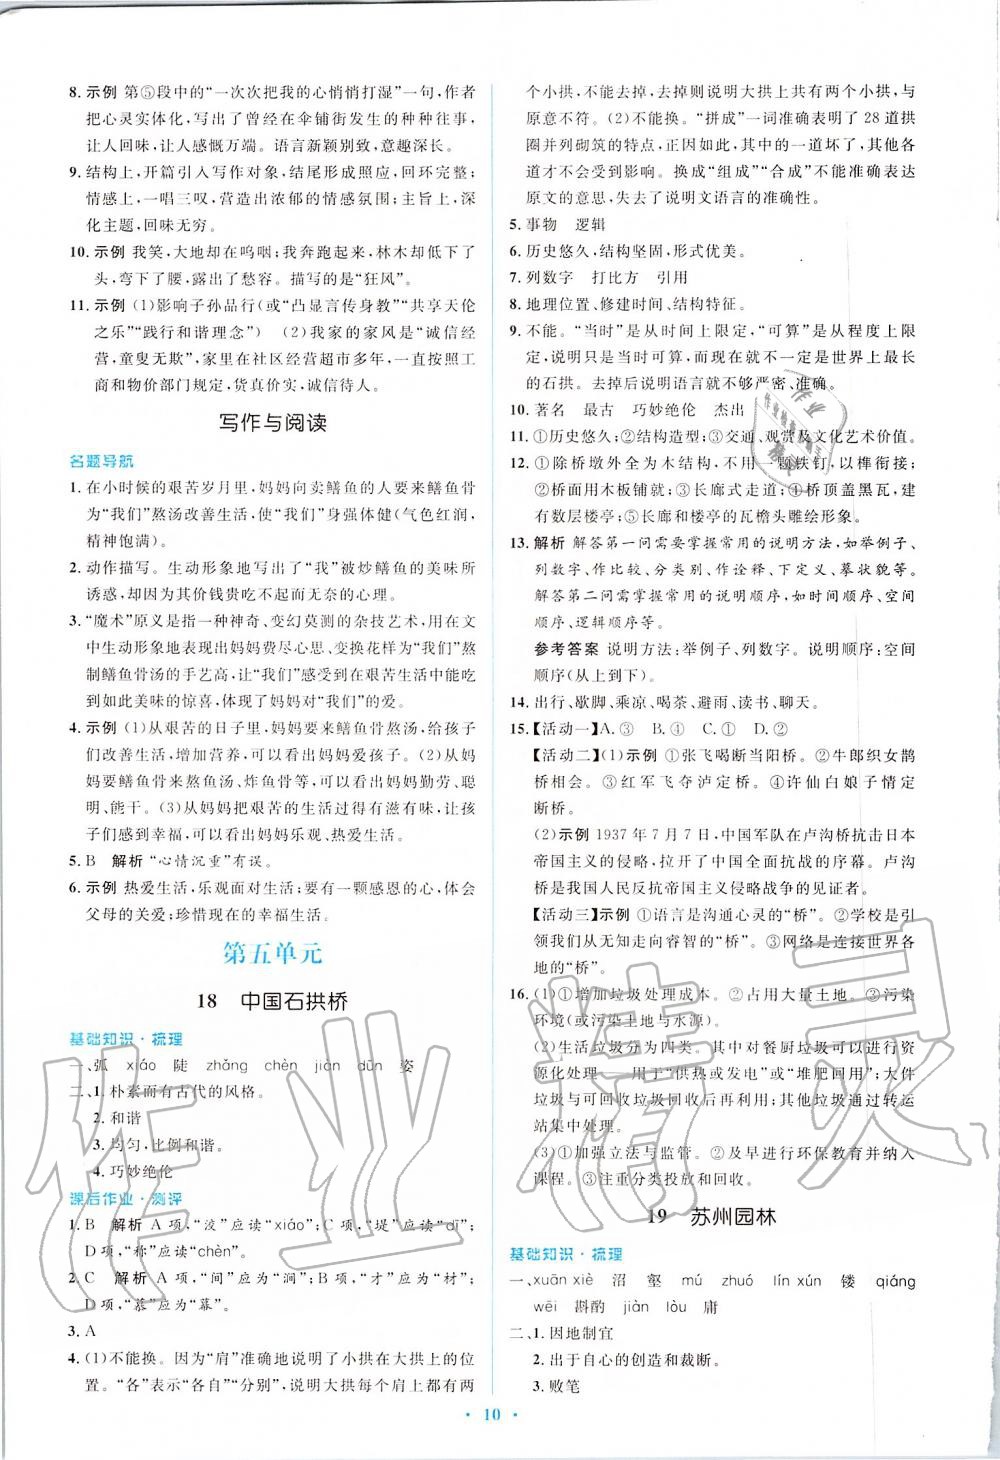 8. 示例 第⑤段中的“一次次把我的心悄悄打湿”一句,作者
把心灵实体化,写出了曾经在伞铺街发生的种种往事,
让人回味,让人感慨万端。语言新颖别致,意趣深长。
9. 结构上,开篇引入写作对象,结尾形成照应,回环完整;
情感上,一唱三叹,营造出浓郁的情感氛围;主旨上,深
化主题,回味无穷。
10. 示例 我笑,大地却在呜咽;我奔跑起来,林木却低下了
头,弯下了腰,露出了愁容。描写的是“狂风”。
11. 示例 (1)影响子孙品行(或“凸显言传身教”“共享天伦
之乐”“践行和谐理念”) (2)我家的家风是“诚信经
营,童叟无欺”,家里在社区经营超市多年,一直按照工
商和物价部门规定,货真价实,诚信待人。
写作与阅读
名题导航
1. 在小时候的艰苦岁月里,妈妈向卖鳝鱼的人要来鳝鱼骨
为“我们”熬汤改善生活,使“我们”身强体健(气色红润,
精神饱满)。
2. 动作描写。生动形象地写出了“我”被炒鳝鱼的美味所
诱惑,却因为其价钱贵吃不起而无奈的心理。
3. “魔术”原义是指一种神奇、变幻莫测的杂技艺术,用在文
中生动形象地表现出妈妈费尽心思、变换花样为“我们”熬
制鳝鱼骨汤的手艺高,让“我们”在艰苦生活中感受到
如此美味的惊喜,体现了妈妈对“我们”的爱。
4. 示例 (1)从艰苦的日子里,妈妈要来鳝鱼骨熬汤,给孩子
们改善生活,增加营养,可以看出妈妈爱孩子。(2)从妈
妈要鳝鱼骨来熬鱼汤、炸鱼骨等,可以看出妈妈勤劳、聪
明、能干。(3)从妈妈把艰苦的生活过得有滋有味,让孩
子们感到幸福,可以看出妈妈乐观、热爱生活。
5. B 解析 “心情沉重”有误。
6. 示例 热爱生活,乐观面对生活;要有一颗感恩的心,体会
父母的关爱;珍惜现在的幸福生活。
第五单元
18 中国石拱桥
基础知识·梳理
一、弧 xiáo 陡 zhǎng chèn jiàn dūn 姿
二、1. 朴素而有古代的风格。
2. 和谐
3. 均匀,比例和谐。
4. 巧妙绝伦
课后作业·测评
1. B 解析 A项,“洨”应读“xiáo”;C项,“堤”应读“dī”;
D项,“称”应读“chèn”。
2. C 解析 A项,“间”应为“涧”;B项,“才”应为“材”;
D项,“慕”应为“幕”。
3. A
4. (1)不能换。因为“肩”准确地说明了小拱在大拱上的位
置。“各”表示“各自”“分别”,说明大拱每个肩上都有两
个小拱,不能去掉,去掉则说明大拱上共有两个小拱,与
原意不符。(2)不能换。“拼成”一词准确表明了28道拱
圈并列砌筑的特点,正因如此,其中的一道坏了,其他各
道才不会受到影响。换成“组成”“合成”不能准确表达
原文的意思,失去了说明文语言的准确性。
5. 事物 逻辑
6. 历史悠久,结构坚固,形式优美。
7. 列数字 打比方 引用
8. 地理位置、修建时间、结构特征。
9. 不能。“当时”是从时间上限定,“可算”是从程度上限
定,说明只是当时可算是最长的,不一定是世界上最长
的石拱。去掉后说明语言就不够严密、准确。
10. 著名 最古 巧妙绝伦 杰出
11. ①历史悠久;②结构造型;③交通、观赏及文化艺术价值。
12. ①除桥墩外全为木结构,不用一颗铁钉,以榫衔接;
②桥面用木板铺就;③长廊式走道;④桥顶盖黑瓦,建
有数层楼亭;⑤长廊和楼亭的瓦檐头雕绘形象。
13. 解析 解答第一问需要掌握常用的说明方法,如举例子、
列数字、作比较、分类别、作诠释、下定义、摹状貌等。
解答第二问需掌握常用的说明顺序,如时间顺序、空间
顺序、逻辑顺序等。
参考答案 说明方法:举例子、列数字。说明顺序:空间
顺序(从上到下)。
14. 出行、歇脚、乘凉、喝茶、避雨、读书、聊天。
15.【活动一】A.③ B.④ C.① D.②
【活动二】(1)示例 ①张飞喝断当阳桥。②牛郎织女鹊
桥相会。③红军飞夺泸定桥。④许仙白娘子情定
断桥。
(2)示例 1937年7月7日,中国军队在卢沟桥抗击日本
帝国主义的侵略,拉开了中国全面抗战的序幕。卢沟
桥是我国人民反抗帝国主义侵略战争的见证者。
【活动三】示例 ①语言是沟通心灵的“桥”。②学校是引
领我们从无知走向睿智的“桥”。③网络是连接世界各
地的“桥”。
16. (1)①增加垃圾处理成本。②占用大量土地。③污染
环境(或污染土地与水源)。
(2)生活垃圾分为四类。其中对餐厨垃圾可以进行资
源化处理——用于“供热或发电”或“堆肥回用”;大件
垃圾与可回收垃圾回收后再利用;其他垃圾通过转运
站集中处理。
(3)①加强立法与监管。②及早进行环保教育并纳入
课程。③注重分类投放和回收。
19 苏州园林
基础知识·梳理
一、xuān xiè 沼 壑 mú zhuó lín xún 镂 qiáng
wēi 斟酌 jiàn lòu 庸
二、1. 因地制宜
2. 出于自心的创造和裁断。
3. 败笔
· 10 ·
作业精灵